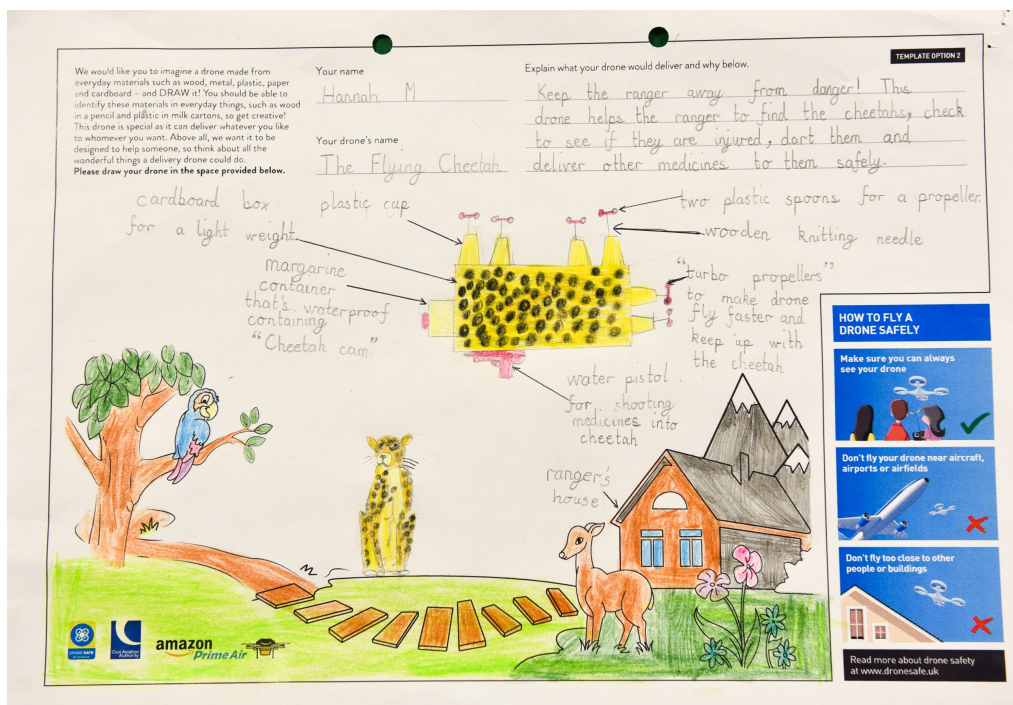 We would like you to imagine a drone made from
everyday materials such as wood, metal, plastic, paper
and cardboard – and DRAW it! You should be able to
identify these materials in everyday things, such as wood
in a pencil and plastic in milk cartons, so get creative!
This drone is special as it can deliver whatever you like
to whomever you want. Above all, we want it to be
designed to help someone, so think about all the
wonderful things a delivery drone could do.
Please draw your drone in the space provided below.
Your name
Hannah M
Your drone's name
The Flying Cheetah
Explain what your drone would deliver and why below.
TEMPLATE OPTION 2
Keep the ranger away from danger! This
drone helps the ranger to find the cheetahs, check
to see if they are injured, dart them and
deliver other medicines to them safely.
cardboard box
for a light weight
plastic cup
two plastic spoons for a propeller
wooden knitting needle
margarine
container
that's waterproof
containing
"Cheetah cam"
"turbo propellers"
to make drone
fly faster and
keep up with
the cheetah
water pistol
for shooting
medicines into
cheetah
ranger's
house
HOW TO FLY A
DRONE SAFELY
Make sure you can always
see your drone
Don't fly your drone near aircraft,
airports or airfields
Don't fly too close to other
people or buildings
Read more about drone safety
at www.dronesafe.uk
DRONE SAFE
Civil Aviation
Authority
amazon
Prime Air